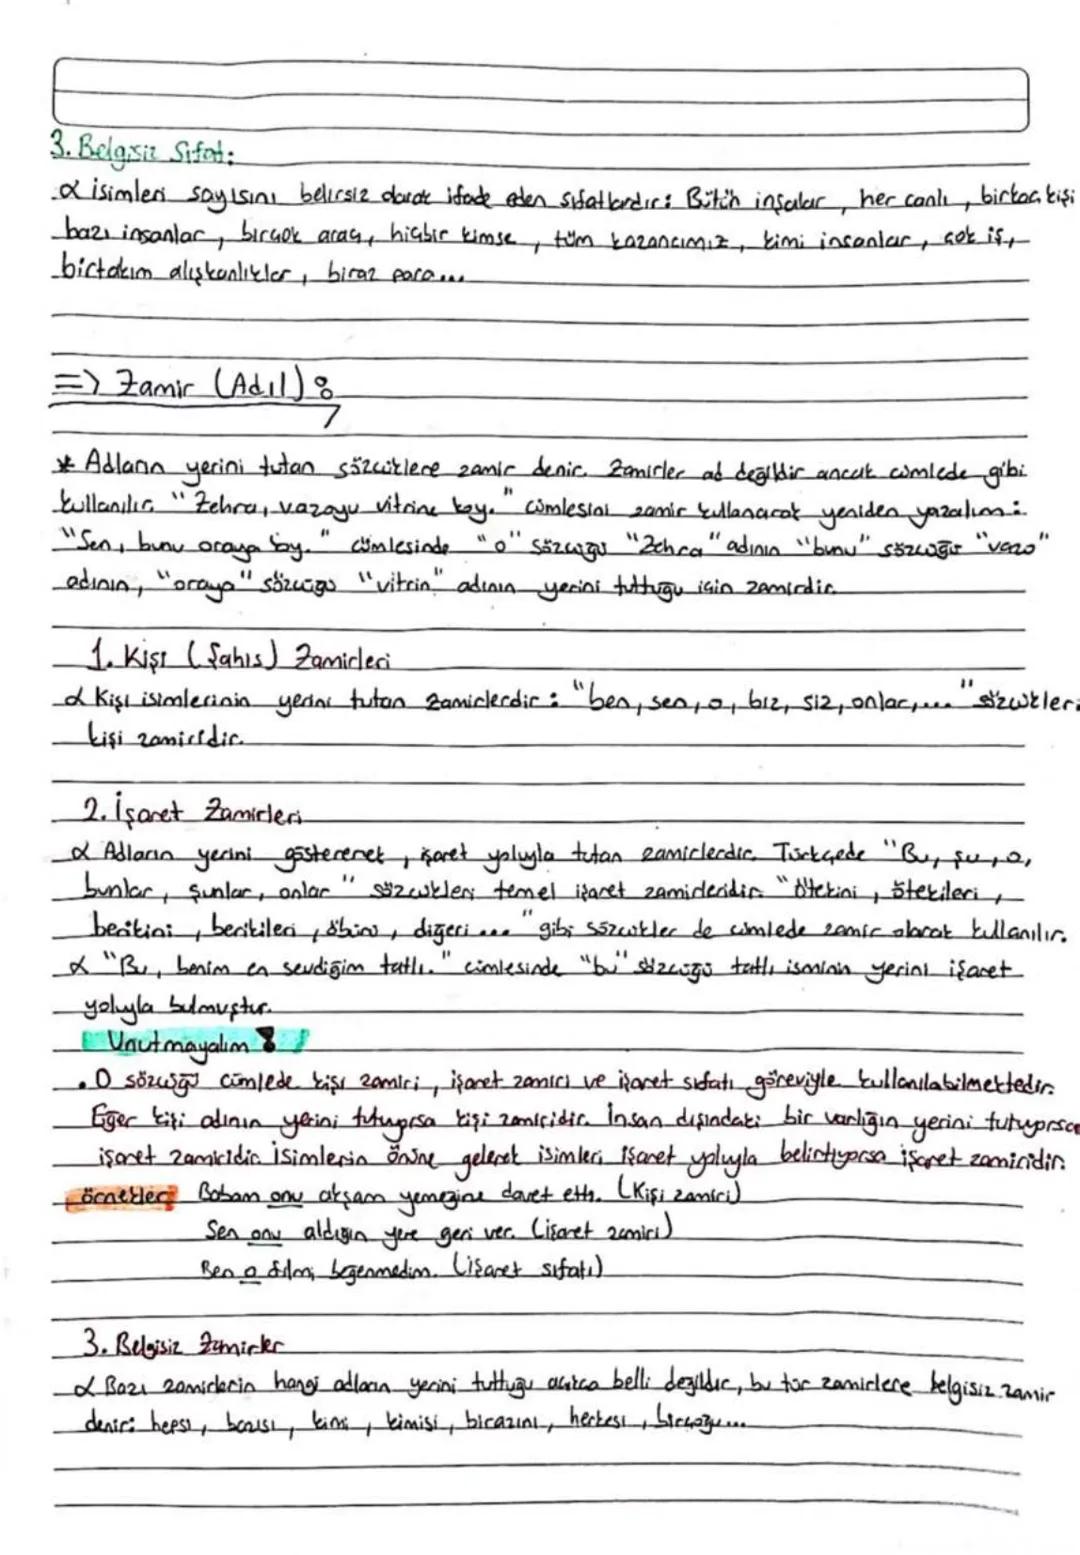 3. Belgisiz Sıfat:
α isimleri sayısını belirsiz olarak ifade eden sıfatlardır: Bütün insalar, her canlı, birkaç kişi
bazı insanlar, birçok araç, hiçbir kimse, tüm kazancımız, kimi insanlar, çok iş,
birtakım alışkanlıklar, biraz para...
=> Zamir (Adıl):
* Adların yerini tutan sözcüklere zamir denir. Zamirler ad değildir ancak cümlede gibi
kullanılır. "Zehra, vazoyu vitrine koy." cümlesini zamir kullanarak yeniden yazalım:
"Sen, bunu oraya koy." cümlesinde "o" sözcüğü "Zehra" adının "bunu" sözcüğü "vazo"
adının, "oraya" sözcüğü "vitrin" adının yerini tuttuğu için zamirdir.
1. Kişi (Şahıs) Zamirleri
α Kişi isimlerinin yerini tutan zamirlerdir: "ben, sen, o, biz, siz, onlar,..." sözcükleri
kişi zamiridir.
2. İşaret Zamirleri
α Adların yerini göstererek, işaret yoluyla tutan zamirlerdir. Türkçede "Bu, şu, o,
bunlar, şunlar, onlar" sözcükleri temel işaret zamirleridir. "Ötekini, ötekileri,
berikini, berikileri, öbürü, diğeri..." gibi sözcükler de cümlede zamir olarak kullanılır.
α "Bu, benim en sevdiğim tatlı." cümlesinde "bu" sözcüğü tatlı isminin yerini işaret
yoluyla bulmuştur.
Unutmayalım!
• O sözcüğü cümlede kişi zamiri, işaret zamiri ve işaret sıfatı göreviyle kullanılabilmektedir.
Eğer kişi adının yerini tutuyorsa kişi zamiridir. İnsan dışındaki bir varlığın yerini tutuyorsa
işaret zamiridir. İsimlerin önüne gelerek isimleri işaret yoluyla belirtiyorsa işaret zamiridir.
örnekler Babam onu akşam yemeğine davet etti. (Kişi zamiri)
Sen onu aldığın yere geri ver. (işaret zamiri)
Ben o filmi beğenmedim. (işaret sıfatı)
3. Belgisiz Zamirler
α Bazı zamirlerin hangi adların yerini tuttuğu açıkça belli değildir, bu tür zamirlere belgisiz zamir
denir: hepsi, bazısı, kimi, kimisi, birazını, herkesi, birçoğu...